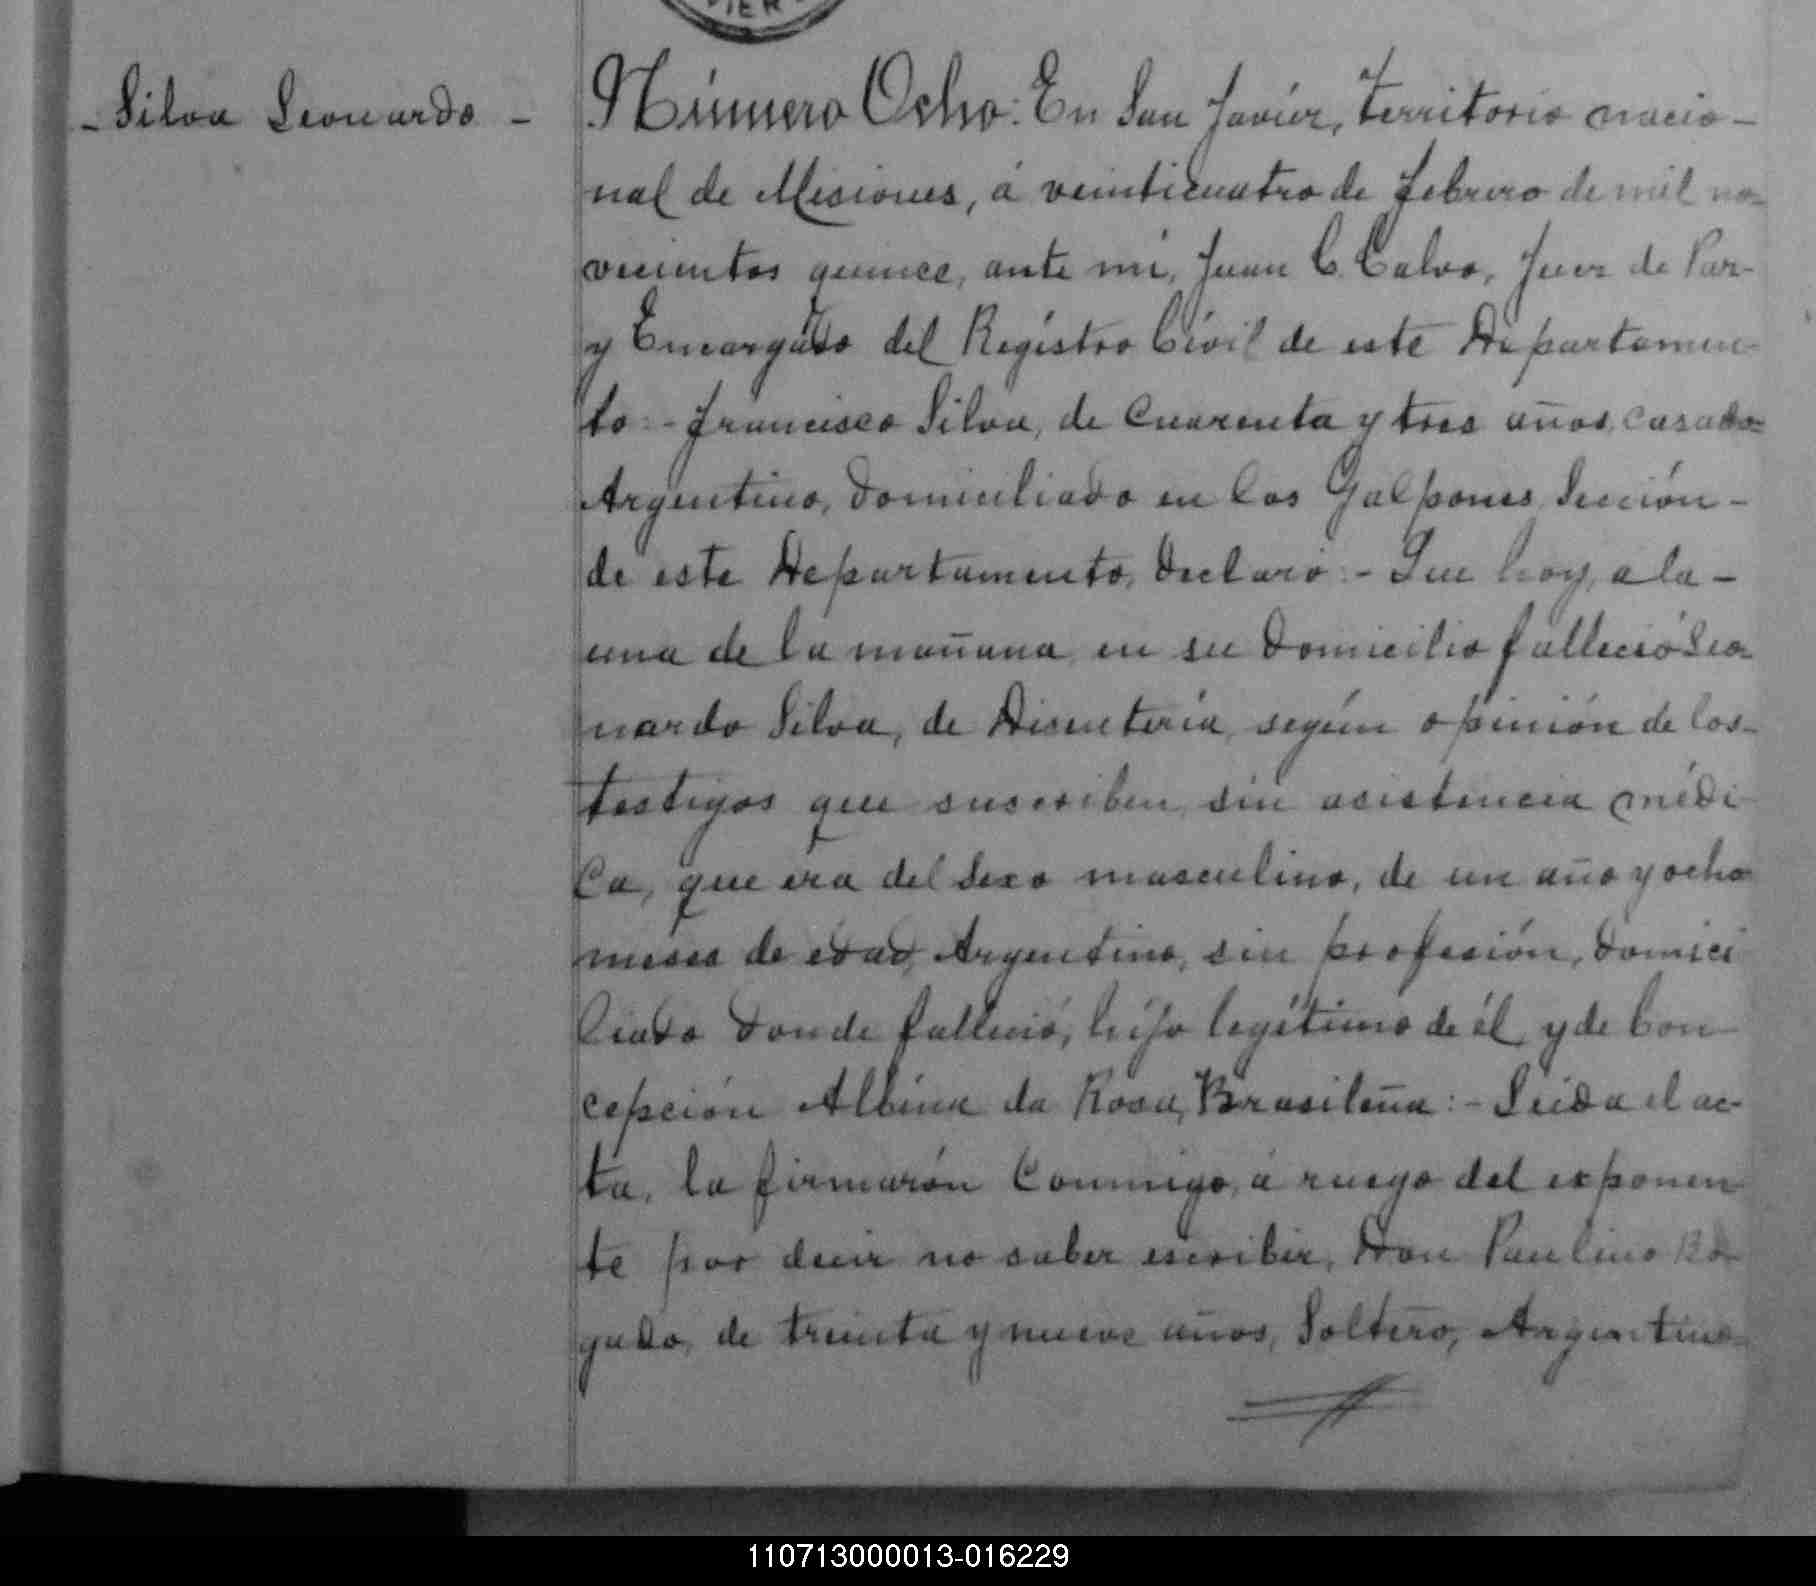 IER
- Silva Leonardo -
Número Ocho: En San Javier, Territorio nacio-
nal de Misiones, á veinticuatro de febrero de mil no-
vecientos quince, ante mi, Juan C. Calvo, Juez de Paz-
y Encargado del Registro Civil de este Departamen-
to:- Francisco Silva, de cuarenta y tres años, casado-
Argentino, domiciliado en los Galpones, Sección-
de este Departamento, declaró:- Que hoy, a la-
una de la mañana, en su domicilio falleció Leo-
nardo Silva, de Disenteria, según opinión de los-
testigos que suscriben, sin asistencia médi-
ca, que era del sexo masculino, de un año y ocho
meses de edad, Argentino, sin profesión, domici
liado donde falleció, hijo legítimo de él y de Con-
cepción Albina da Rosa, Brasileña:- Leida el ac-
ta, la firmarón conmigo, á ruego del exponen
te por decir no saber escribir, Don Paulino Bo-
gado, de treinta y nueve años, Soltero, Argentino-
110713000013-016229